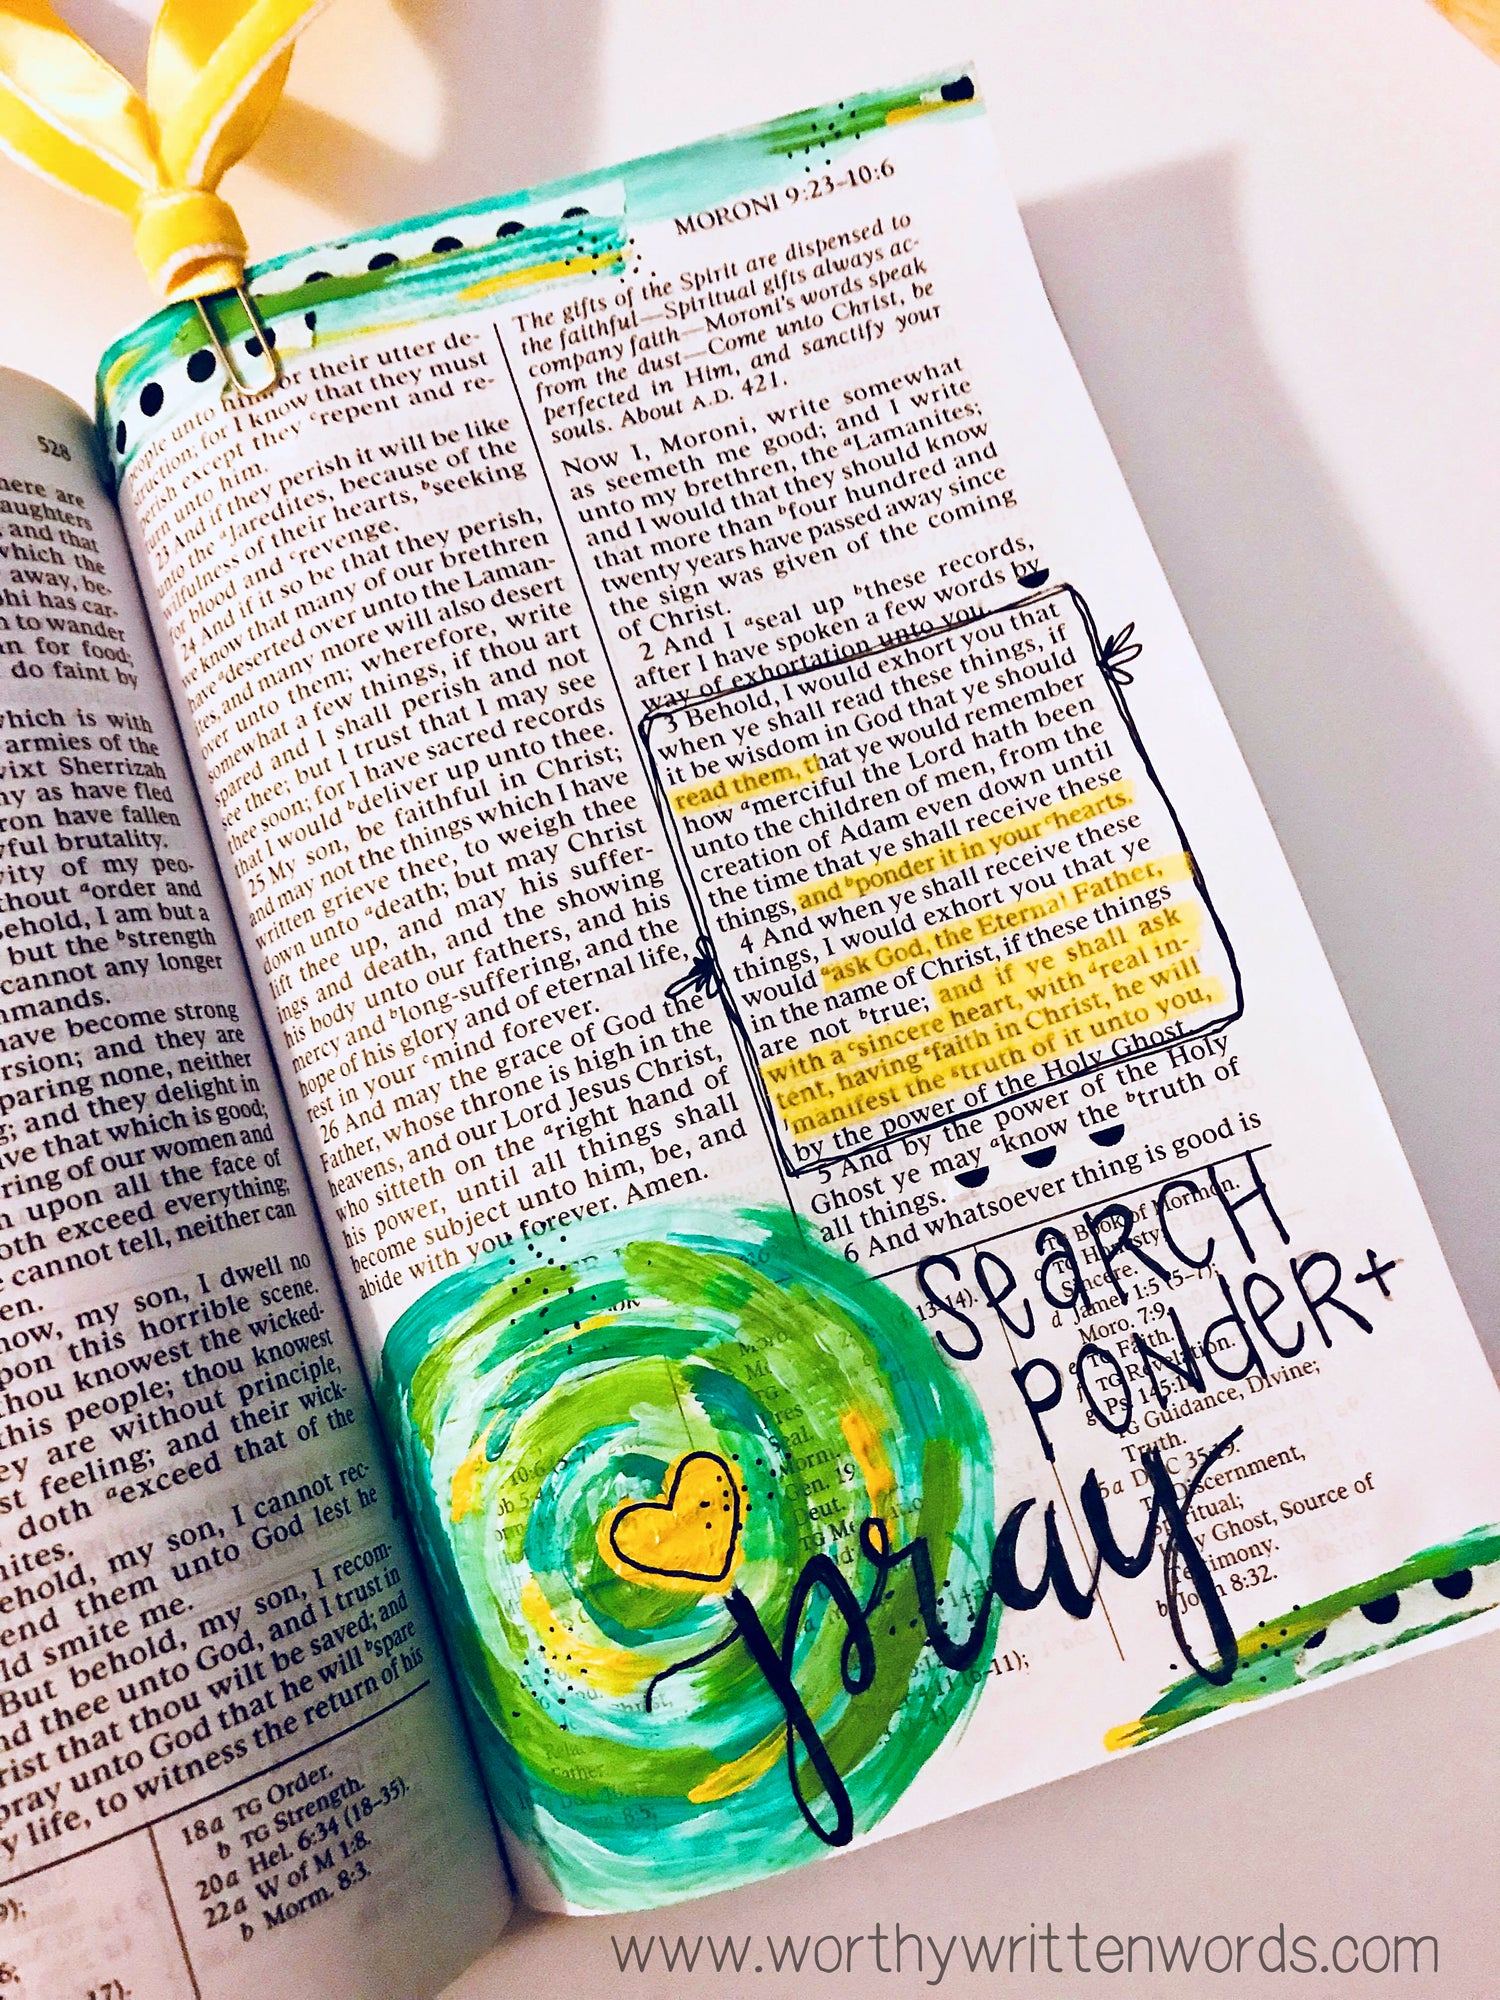 528
here are
aughters
and that
which the
away, be-
phi has car-
n to wander
an for food;
do faint by
which is with
armies of the
wixt Sherrizah
ny as have fled
ron have fallen
ful brutality.
vity of my peo-
thout ᵃorder and
ehold, I am but a
but the ᵇstrength
cannot any longer
mmands.
have become strong
rsion; and they are
paring none, neither
and they delight in
ve that which is good;
ring of our women and
upon all the face of
oth exceed everything;
cannot tell, neither can
en.
now, my son, I dwell no
pon this horrible scene.
thou knowest the wicked-
this people; thou knowest
ey are without principle,
st feeling; and their wick-
doth ᵃexceed that of the
nites.
ehold, my son, I cannot rec-
end them unto God lest he
ld smite me.
But behold, my son, I recom-
nd thee unto God, and I trust in
rist that thou wilt be saved; and
pray unto God that he will ᵇspare
y life, to witness the return of his
18a TG Order.
b TG Strength.
20a Hel. 6:34 (18–35).
22a W of M 1:8.
b Morm. 8:3.
MORONI 9:23–10:6
people unto him, or their utter de-
struction; for I know that they must
perish except they ᶜrepent and re-
turn unto him.
23 And if they perish it will be like
unto the ᵃJaredites, because of the
wilfulness of their hearts, ᵇseeking
for blood and ᶜrevenge.
24 And if it so be that they perish,
we know that many of our brethren
have ᵃdeserted over unto the Laman-
ites, and many more will also desert
over unto them; wherefore, write
somewhat a few things, if thou art
spared and I shall perish and not
see thee; but I trust that I may see
thee soon; for I have sacred records
that I would ᵇdeliver up unto thee.
25 My son, be faithful in Christ;
and may not the things which I have
written grieve thee, to weigh thee
down unto ᵃdeath; but may Christ
lift thee up, and may his suffer-
ings and death, and the showing
his body unto our fathers, and his
mercy and ᵇlong-suffering, and the
hope of his glory and of eternal life,
rest in your ᶜmind forever.
26 And may the grace of God the
Father, whose throne is high in the
heavens, and our Lord Jesus Christ,
who sitteth on the ᵃright hand of
his power, until all things shall
become subject unto him, be, and
abide with you forever. Amen.
The gifts of the Spirit are dispensed to
the faithful—Spiritual gifts always ac-
company faith—Moroni's words speak
from the dust—Come unto Christ, be
perfected in Him, and sanctify your
souls. About A.D. 421.
Now I, Moroni, write somewhat
as seemeth me good; and I write
unto my brethren, the ᵃLamanites;
and I would that they should know
that more than ᵇfour hundred and
twenty years have passed away since
the sign was given of the coming
of Christ.
2 And I ᵃseal up ᵇthese records,
after I have spoken a few words by
way of exhortation unto you.
3 Behold, I would exhort you that
when ye shall read these things, if
it be wisdom in God that ye should
read them, that ye would remember
how ᵃmerciful the Lord hath been
unto the children of men, from the
creation of Adam even down until
the time that ye shall receive these
things, and ᵇponder it in your ᶜhearts.
4 And when ye shall receive these
things, I would exhort you that ye
would ᵃask God, the Eternal Father,
in the name of Christ, if these things
are not ᵇtrue; and if ye shall ask
with a ᶜsincere heart, with ᵈreal in-
tent, having ᵉfaith in Christ, he will
manifest the ᶠtruth of it unto you,
by the power of the Holy Ghost.
5 And by the power of the Holy
Ghost ye may ᵃknow the ᵇtruth of
all things.
6 And whatsoever thing is good is
TG Book of Mormon.
c TG Honesty;
Sincere.
d James 1:5 (5–7);
Moro. 7:9.
e TG Faith.
f TG Revelation.
g Ps. 145:1
TG Guidance, Divine;
Truth.
5a D&C 35:19.
TG Discernment,
Spiritual;
Holy Ghost, Source of
Testimony.
b John 8:32.
Search
Ponder+
pray
www.worthywrittenwords.com